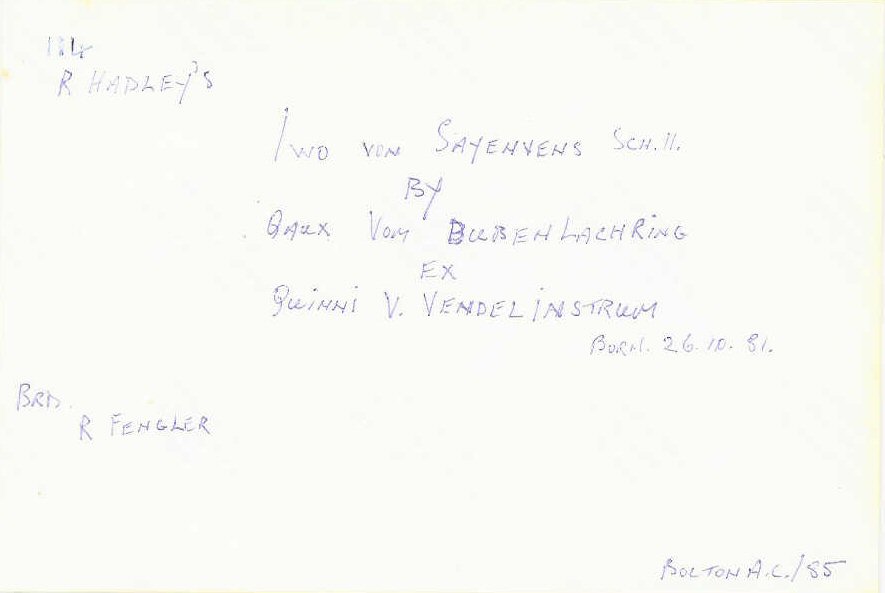 R HADLEY'S
IWO VON SAYENVENS SCH.II.
BY
QAUX VOM BUBENLACHRING
EX
QUINNI V. VENDELINSTRUM
BORN. 26.10.81.
BRD.
R FENGLER
BOLTON A.C./85